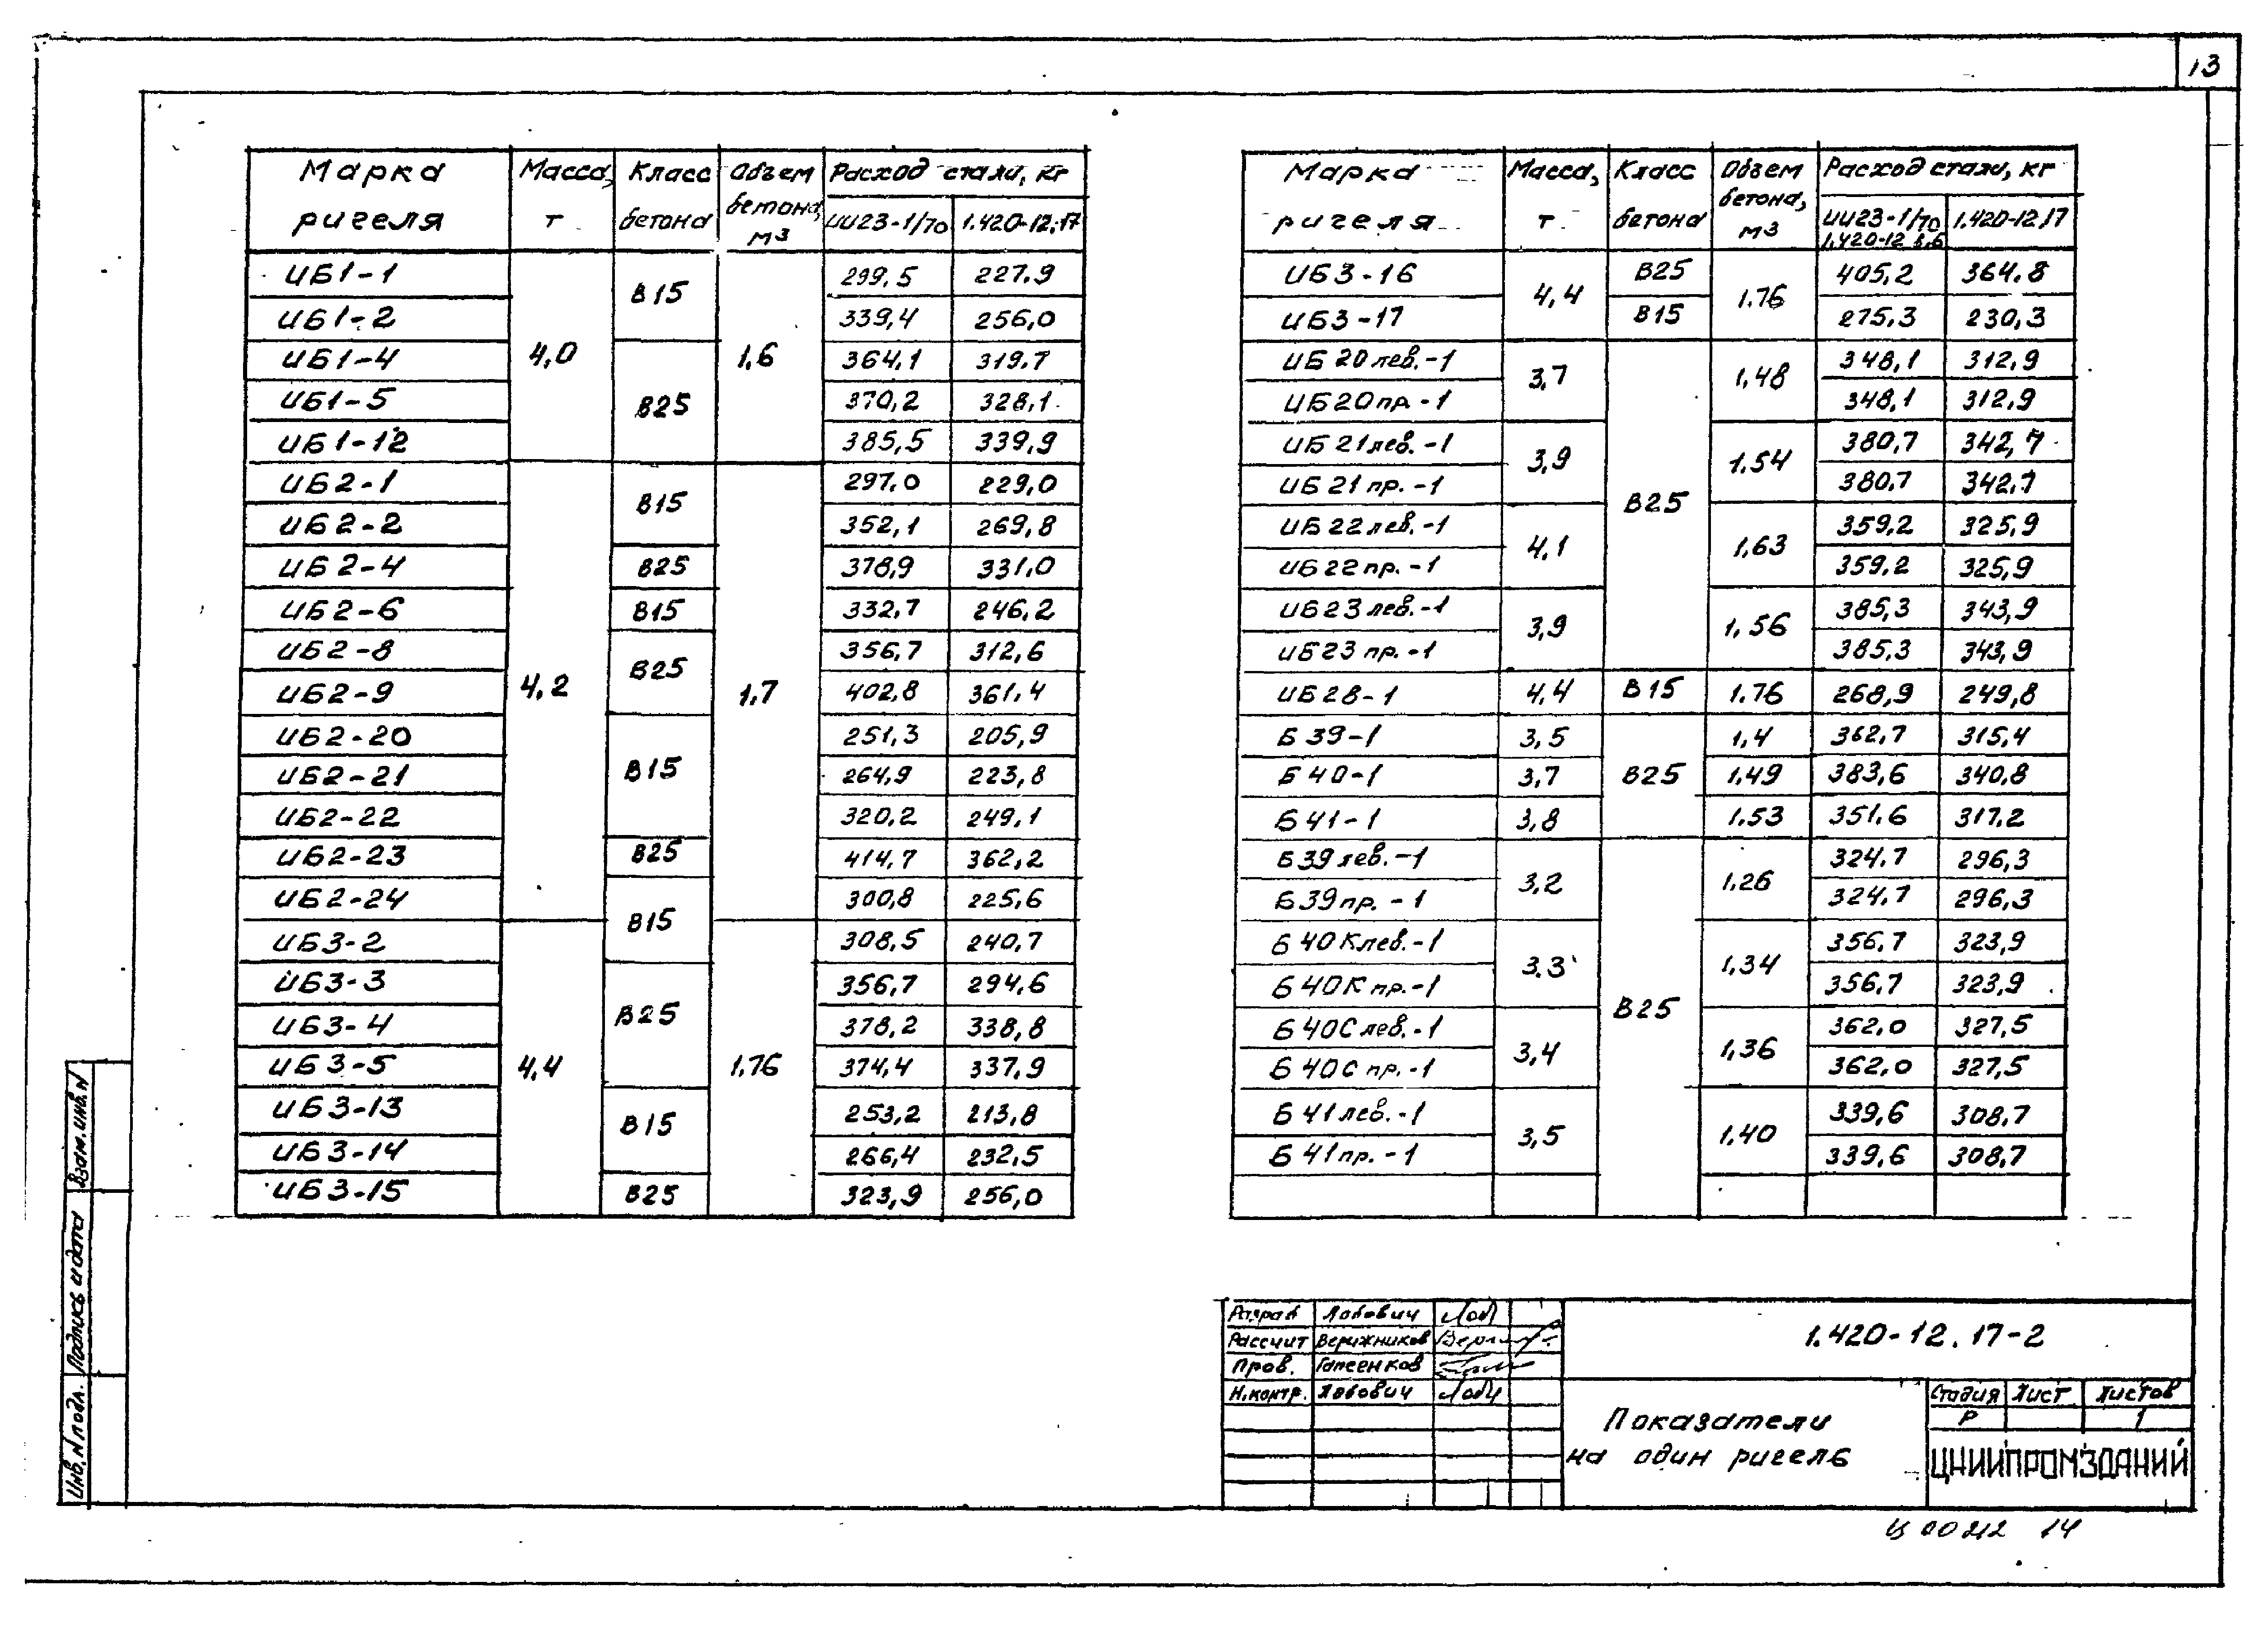 13
Марка ригеля Масса, т Класс бетона Объем бетона, м3 Расход стали, кг
ИИ23-1/70 1.420-12.17
ИБ1-1 4,0 В15 1,6 299,5 227,9
ИБ1-2 339,4 256,0
ИБ1-4 В25 364,1 319,7
ИБ1-5 370,2 328,1
ИБ1-12 385,5 339,9
ИБ2-1 4,2 В15 1,7 297,0 229,0
ИБ2-2 352,1 269,8
ИБ2-4 В25 378,9 331,0
ИБ2-6 В15 332,7 246,2
ИБ2-8 В25 356,7 312,6
ИБ2-9 402,8 361,4
ИБ2-20 В15 251,3 205,9
ИБ2-21 264,9 223,8
ИБ2-22 320,2 249,1
ИБ2-23 В25 414,7 362,2
ИБ2-24 В15 300,8 225,6
ИБ3-2 4,4 1,76 308,5 240,7
ИБ3-3 В25 356,7 294,6
ИБ3-4 378,2 338,8
ИБ3-5 374,4 337,9
ИБ3-13 В15 253,2 213,8
ИБ3-14 266,4 232,5
ИБ3-15 В25 323,9 256,0
Марка ригеля Масса, т Класс бетона Объем бетона, м3 Расход стали, кг
ИИ23-1/70 1.420-12 в.6 1.420-12.17
ИБ3-16 4,4 В25 1.76 405,2 364.8
ИБ3-17 В15 275,3 230,3
ИБ20лев.-1 3,7 В25 1,48 348,1 312,9
ИБ20пр.-1 348,1 312,9
ИБ21лев.-1 3,9 1.54 380,7 342,7
ИБ21пр.-1 380.7 342,7
ИБ22лев.-1 4,1 1,63 359,2 325,9
ИБ22пр.-1 359,2 325,9
ИБ23лев.-1 3,9 1,56 385,3 343,9
ИБ23пр.-1 385,3 343,9
ИБ28-1 4,4 В15 1.76 268,9 249,8
Б39-1 3,5 В25 1,4 362,7 315,4
Б40-1 3,7 1,49 383,6 340,8
Б41-1 3,8 1.53 351,6 317,2
Б39лев.-1 3,2 В25 1,26 324,7 296,3
Б39пр.-1 324,7 296,3
Б40Клев.-1 3.3 1,34 356,7 323,9
Б40Кпр.-1 356,7 323,9
Б40Слев.-1 3,4 1,36 362,0 327,5
Б40Спр.-1 362,0 327,5
Б41лев.-1 3,5 1,40 339,6 308,7
Б41пр.-1 339,6 308,7
Взам.инв.N
Подпись и дата
Инв.N подл.
Разраб Лобович
Рассчит Верижников
Пров. Гапеенков
Н.контр. Лобович
1.420-12.17-2
Показатели
на один ригель
Стадия Лист Листов
Р 1
ЦНИИПРОМЗДАНИЙ
Ц00212 14